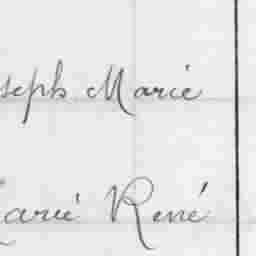 seph Marie
arie René